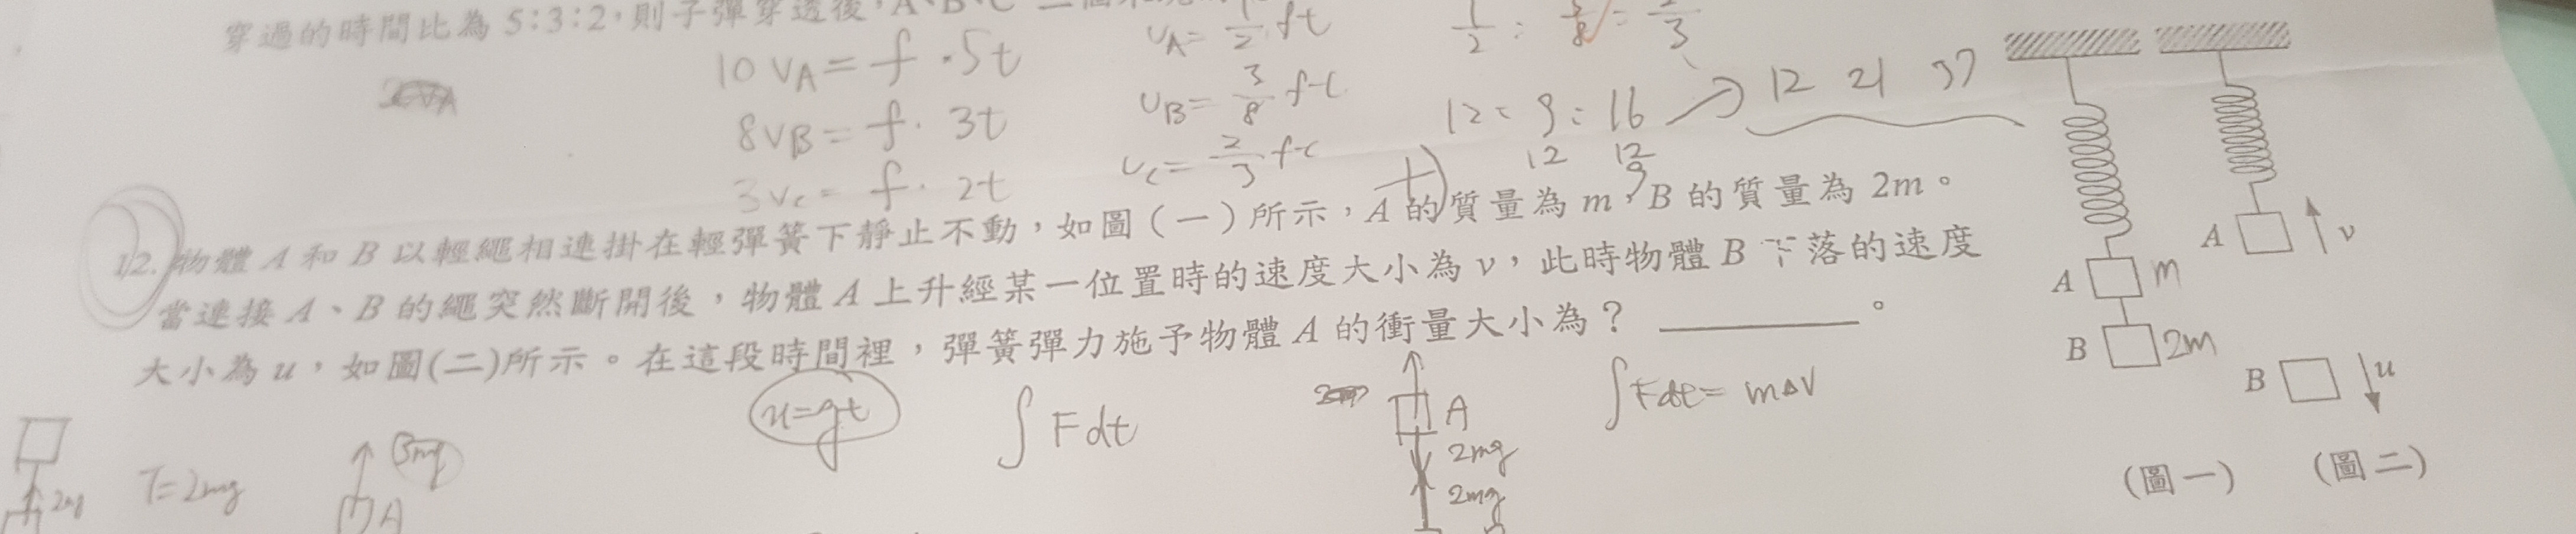 穿過的時間比為 5:3:2，則子彈穿透後，A、B、C
10 VA = f · 5t
8VB = f · 3t
3Vc = f · 2t
VA = 1/2 ft
VB = 3/8 ft
Vc = 2/3 ft
1/2 : 3/8 : 2/3
12 : 9 : 16 → 12 21 37
12.物體 A 和 B 以輕繩相連掛在輕彈簧下靜止不動，如圖(一)所示，A 的質量為 m，B 的質量為 2m。
當連接 A、B 的繩突然斷開後，物體 A 上升經某一位置時的速度大小為 v，此時物體 B 下落的速度
大小為 u，如圖(二)所示。在這段時間裡，彈簧彈力施予物體 A 的衝量大小為？________。
u=gt
∫Fdt
∫Fdt = m△V
A
2mg
2mg
2mg
T=2mg
3mg
A
A m
B 2m
(圖一)
A v
B u
(圖二)